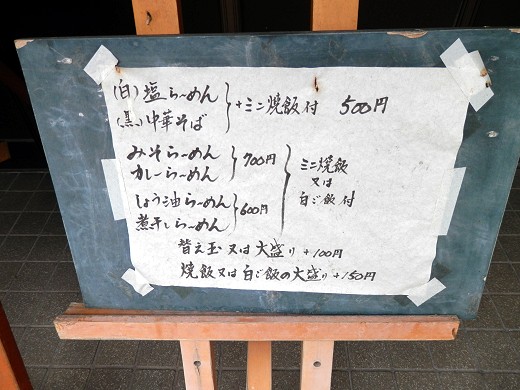 (白)塩らーめん
(黒)中華そば
+ミニ焼飯付 500円
みそらーめん
カレーらーめん
700円
しょう油らーめん
煮干しらーめん
600円
ミニ焼飯
又は
白ご飯付
替え玉又は大盛り+100円
焼飯又は白ご飯の大盛り+150円